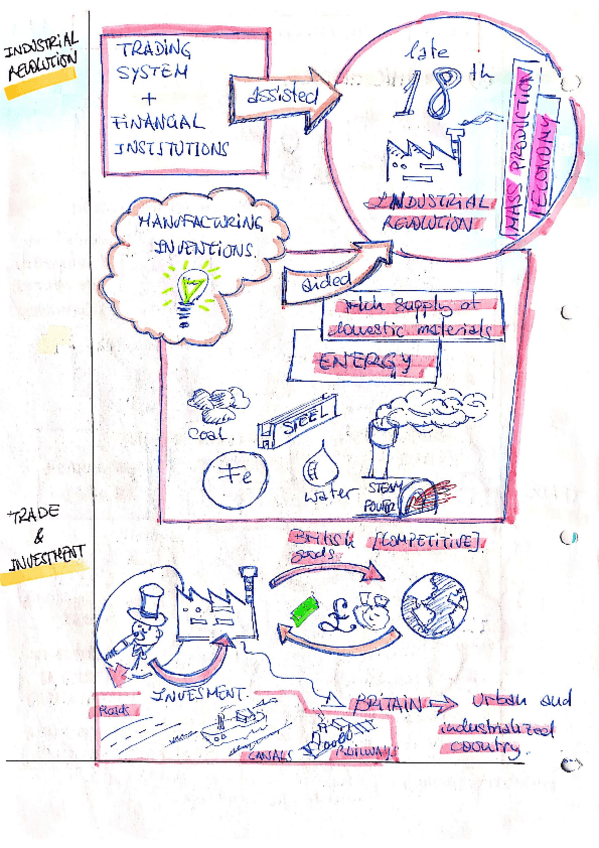 INDUSTRIAL
REVOLUTION
TRADING
SYSTEM
+
FINANCIAL
INSTITUTIONS
assisted
late
18th
INDUSTRIAL
REVOLUTION.
MASS PRODUCTION
ECONOMY
MANUFACTURING
INVENTIONS.
aided
Rich supply of
domestic materials
ENERGY
Coal.
STEEL
Fe
water
STEAM
POWER
TRADE
&
INVESTMENT
British [COMPETITIVE].
goods
£
INVESMENT.
Roads
CANALS
RAILWAYS
BRITAIN → Urban and
industrialized
country.